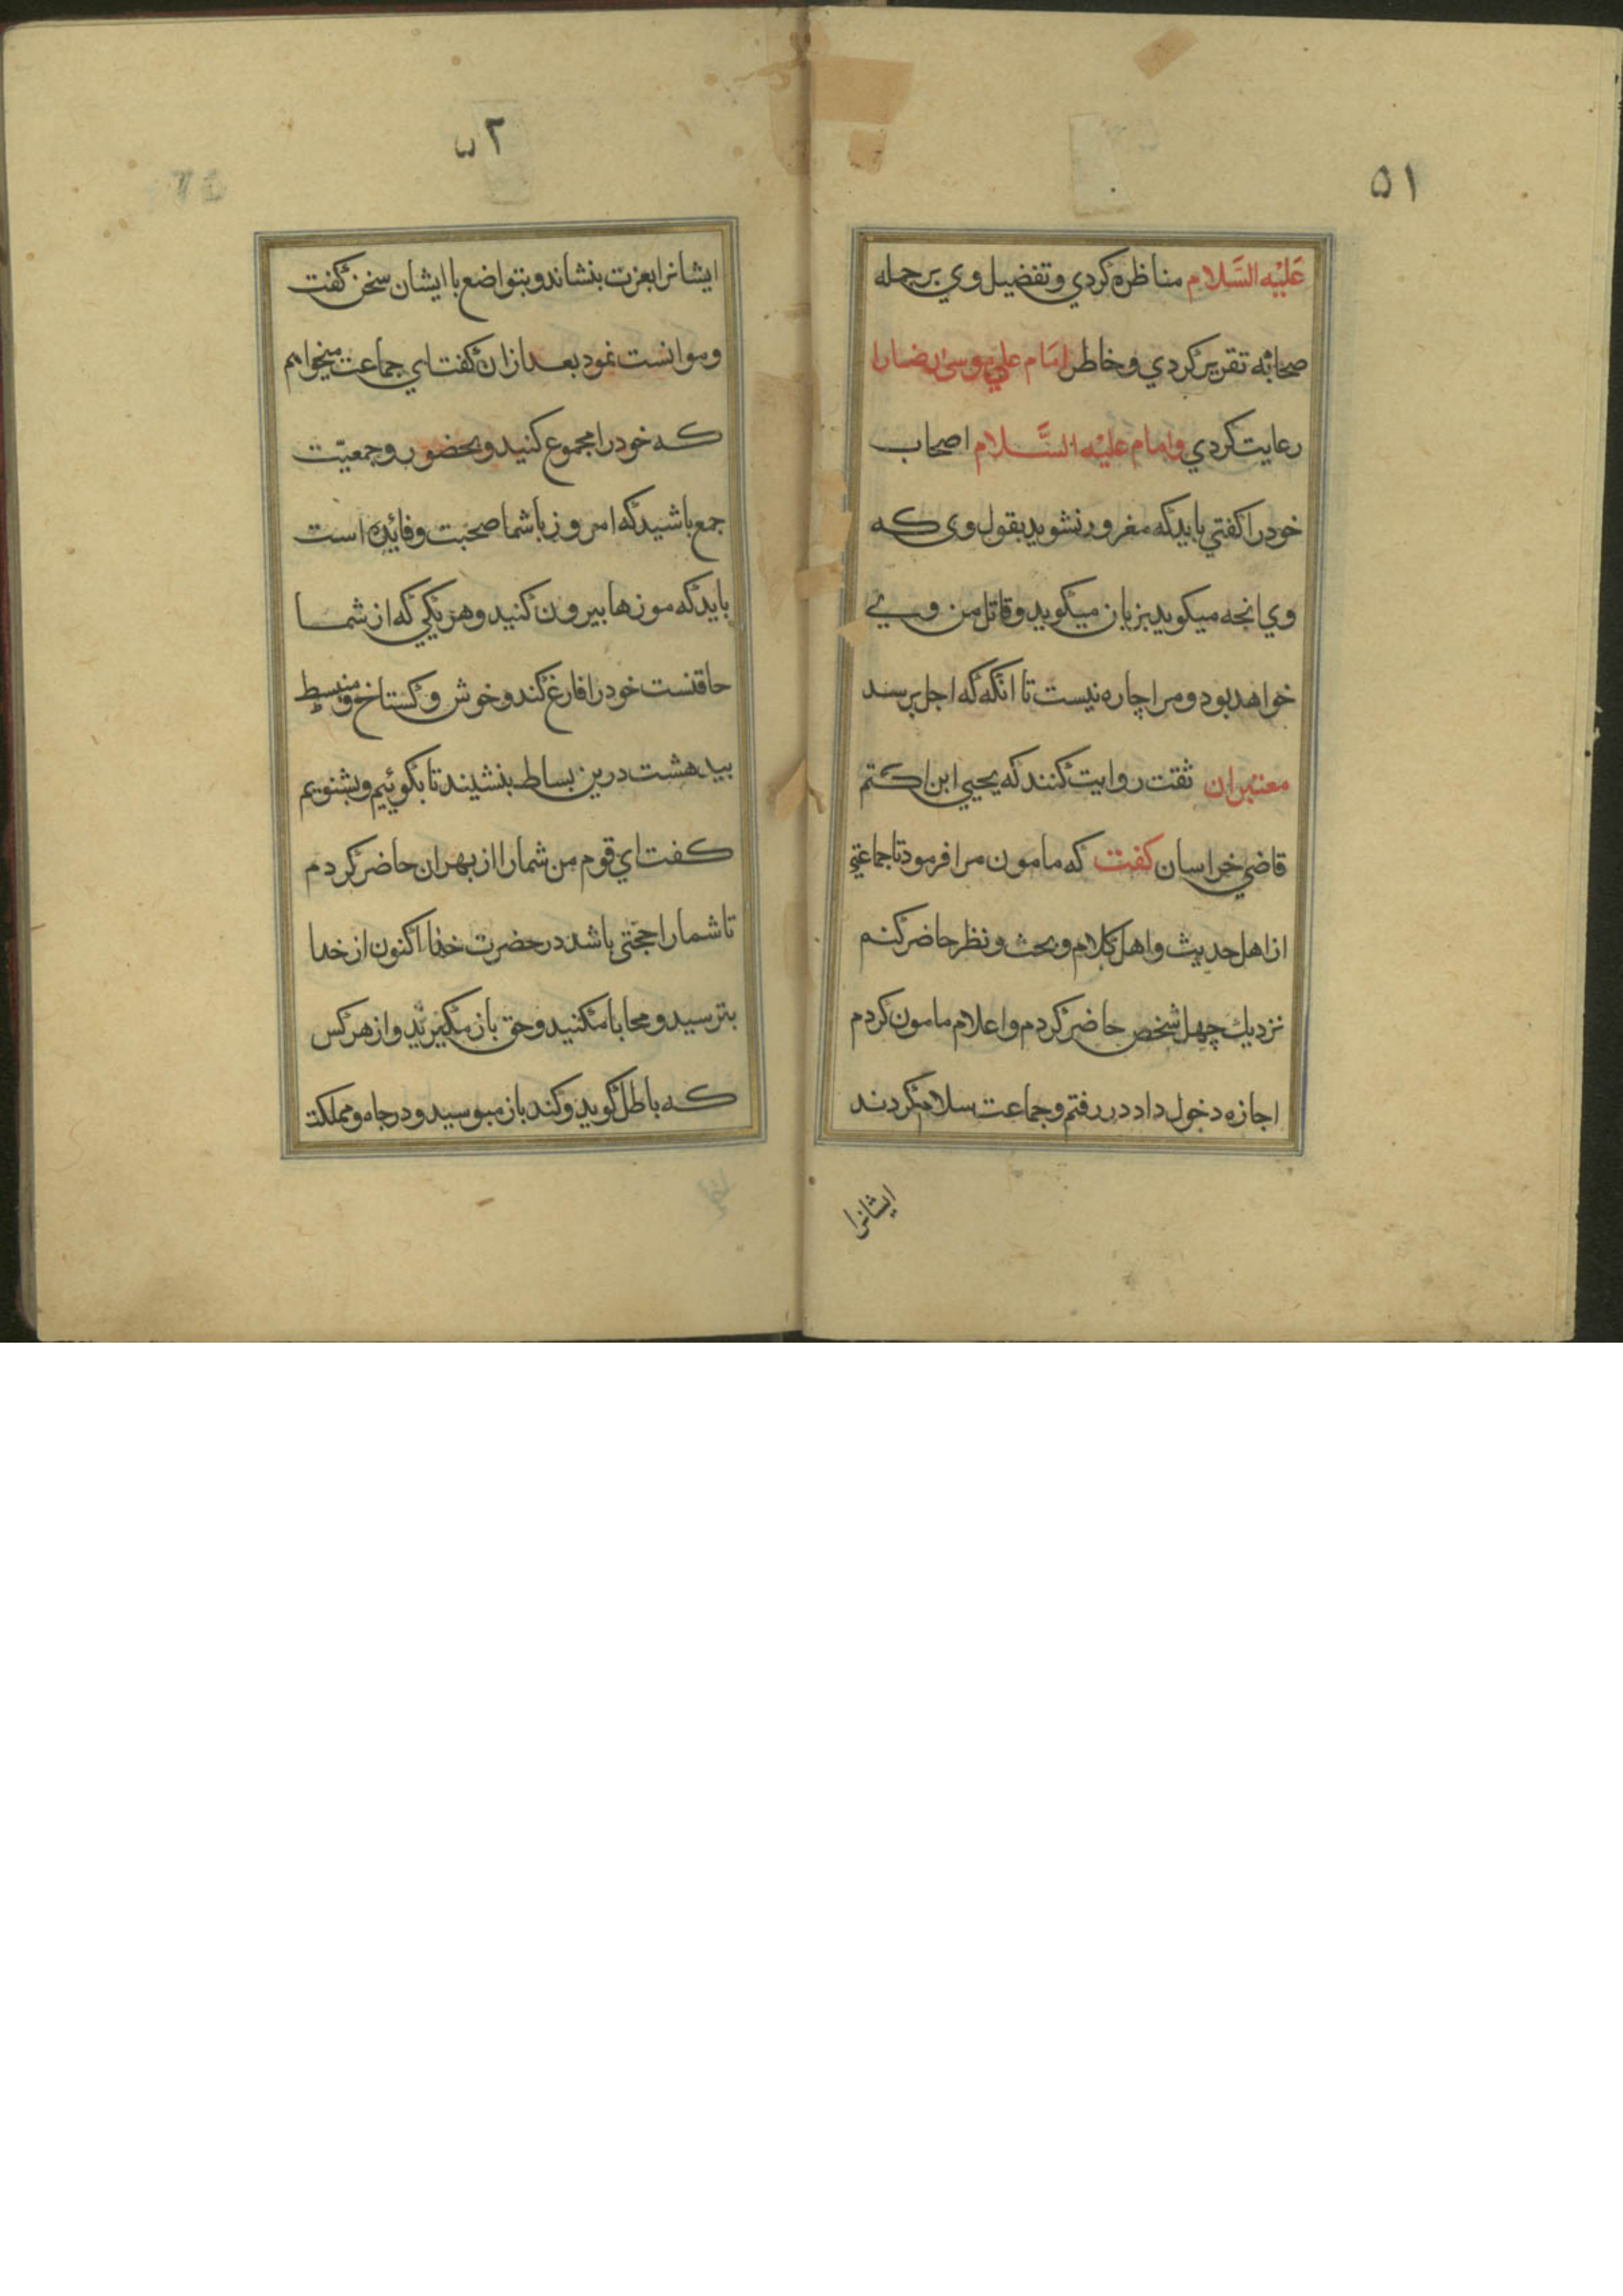 ٥١
عَلَیْه السَّلام مناظره کردي و تفضیل وي بر جمله
صحابه تقریر کردي و خاطر امَام علي موسی رضا را
رعایت کردي و امام علیْه السَّلام اصحاب
خود را کفتي باید که مغرور نشوید بقول وی که
وي انجه میکوید بزبان میکوید و قاتل من وي
خواهد بود و مرا چاره نیست تا انکه که اجل برسد
معتبران ثقت روایت کنند که یحیي ابن اکتم
قاضي خراسان کفت که مامون مرا فرمود تا جماعتي
از اهل حدیث و اهل کلام و بحث و نظر حاضر کنم
نزدیك چهل شخص حاضر کردم و اعلام مامون کردم
اجازه دخول داد در رفتم و جماعت سلام کردند
ایشانرا
٥٢
ایشانرا بعزت بنشاند و بتواضع با ایشان سخن کفت
و موانست نمود بعد ازان کفت اي جماعت میخواهم
که خود را مجموع کنید و بحضور و جمعیّت
جمع باشید که امروز با شما صحبت و فائده است
باید که موزها بیرون کنید و هر یکي که از شما
حاقنست خود را فارغ کند و خوش و کستاخ و منبسط
بیدهشت درین بساط بنشیند تا بکوئیم و بشنویم
کفت اي قوم من شما را از بهر ان حاضر کردم
تا شما را حجتی باشد در حضرت خدا اکنون از خدا
بترسید و محابا مکنید و حق باز مکیرید و از هر کس
که باطل کوید و کند باز مپوسید و در جاه و مملکت